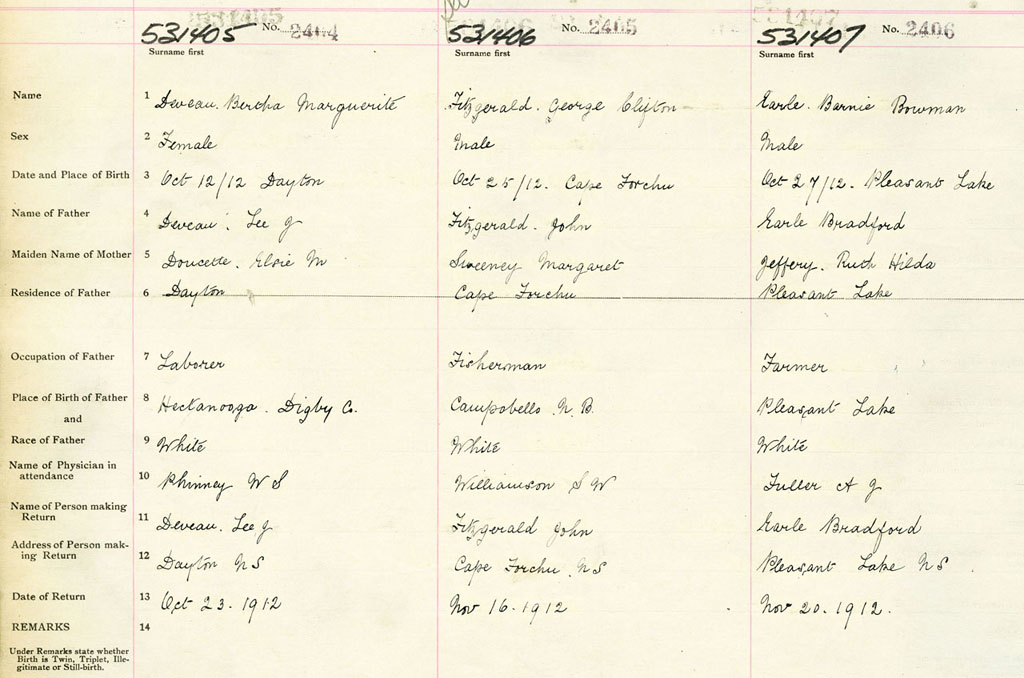 531405 No. 2404 531406 No. 2405 531407 No. 2406
Surname first Surname first Surname first
Name 1 Deveau. Bertha Marguerite Fitzgerald. George Clifton Earle. Barnie Bowman
Sex 2 Female Male Male
Date and Place of Birth 3 Oct 12/12 Dayton Oct 25/12. Cape Forchu Oct 27/12. Pleasant Lake
Name of Father 4 Deveau. Lee J Fitzgerald. John Earle Bradford
Maiden Name of Mother 5 Doucette. Elsie M Sweeney Margaret Jeffery. Ruth Hilda
Residence of Father 6 Dayton Cape Forchu Pleasant Lake
Occupation of Father 7 Laborer Fisherman Farmer
Place of Birth of Father 8 Hectanooga. Digby Co. Campobello N.B. Pleasant Lake
and
Race of Father 9 White White White
Name of Physician in
attendance 10 Phinney W S Williamson S W Fuller A J
Name of Person making
Return 11 Deveau. Lee J Fitzgerald John Earle Bradford
Address of Person mak-
ing Return 12 Dayton N S Cape Forchu. N S Pleasant Lake N S
Date of Return 13 Oct 23. 1912 Nov 16. 1912 Nov 20. 1912.
REMARKS 14
Under Remarks state whether
Birth is Twin, Triplet, Ille-
gitimate or Still-birth.